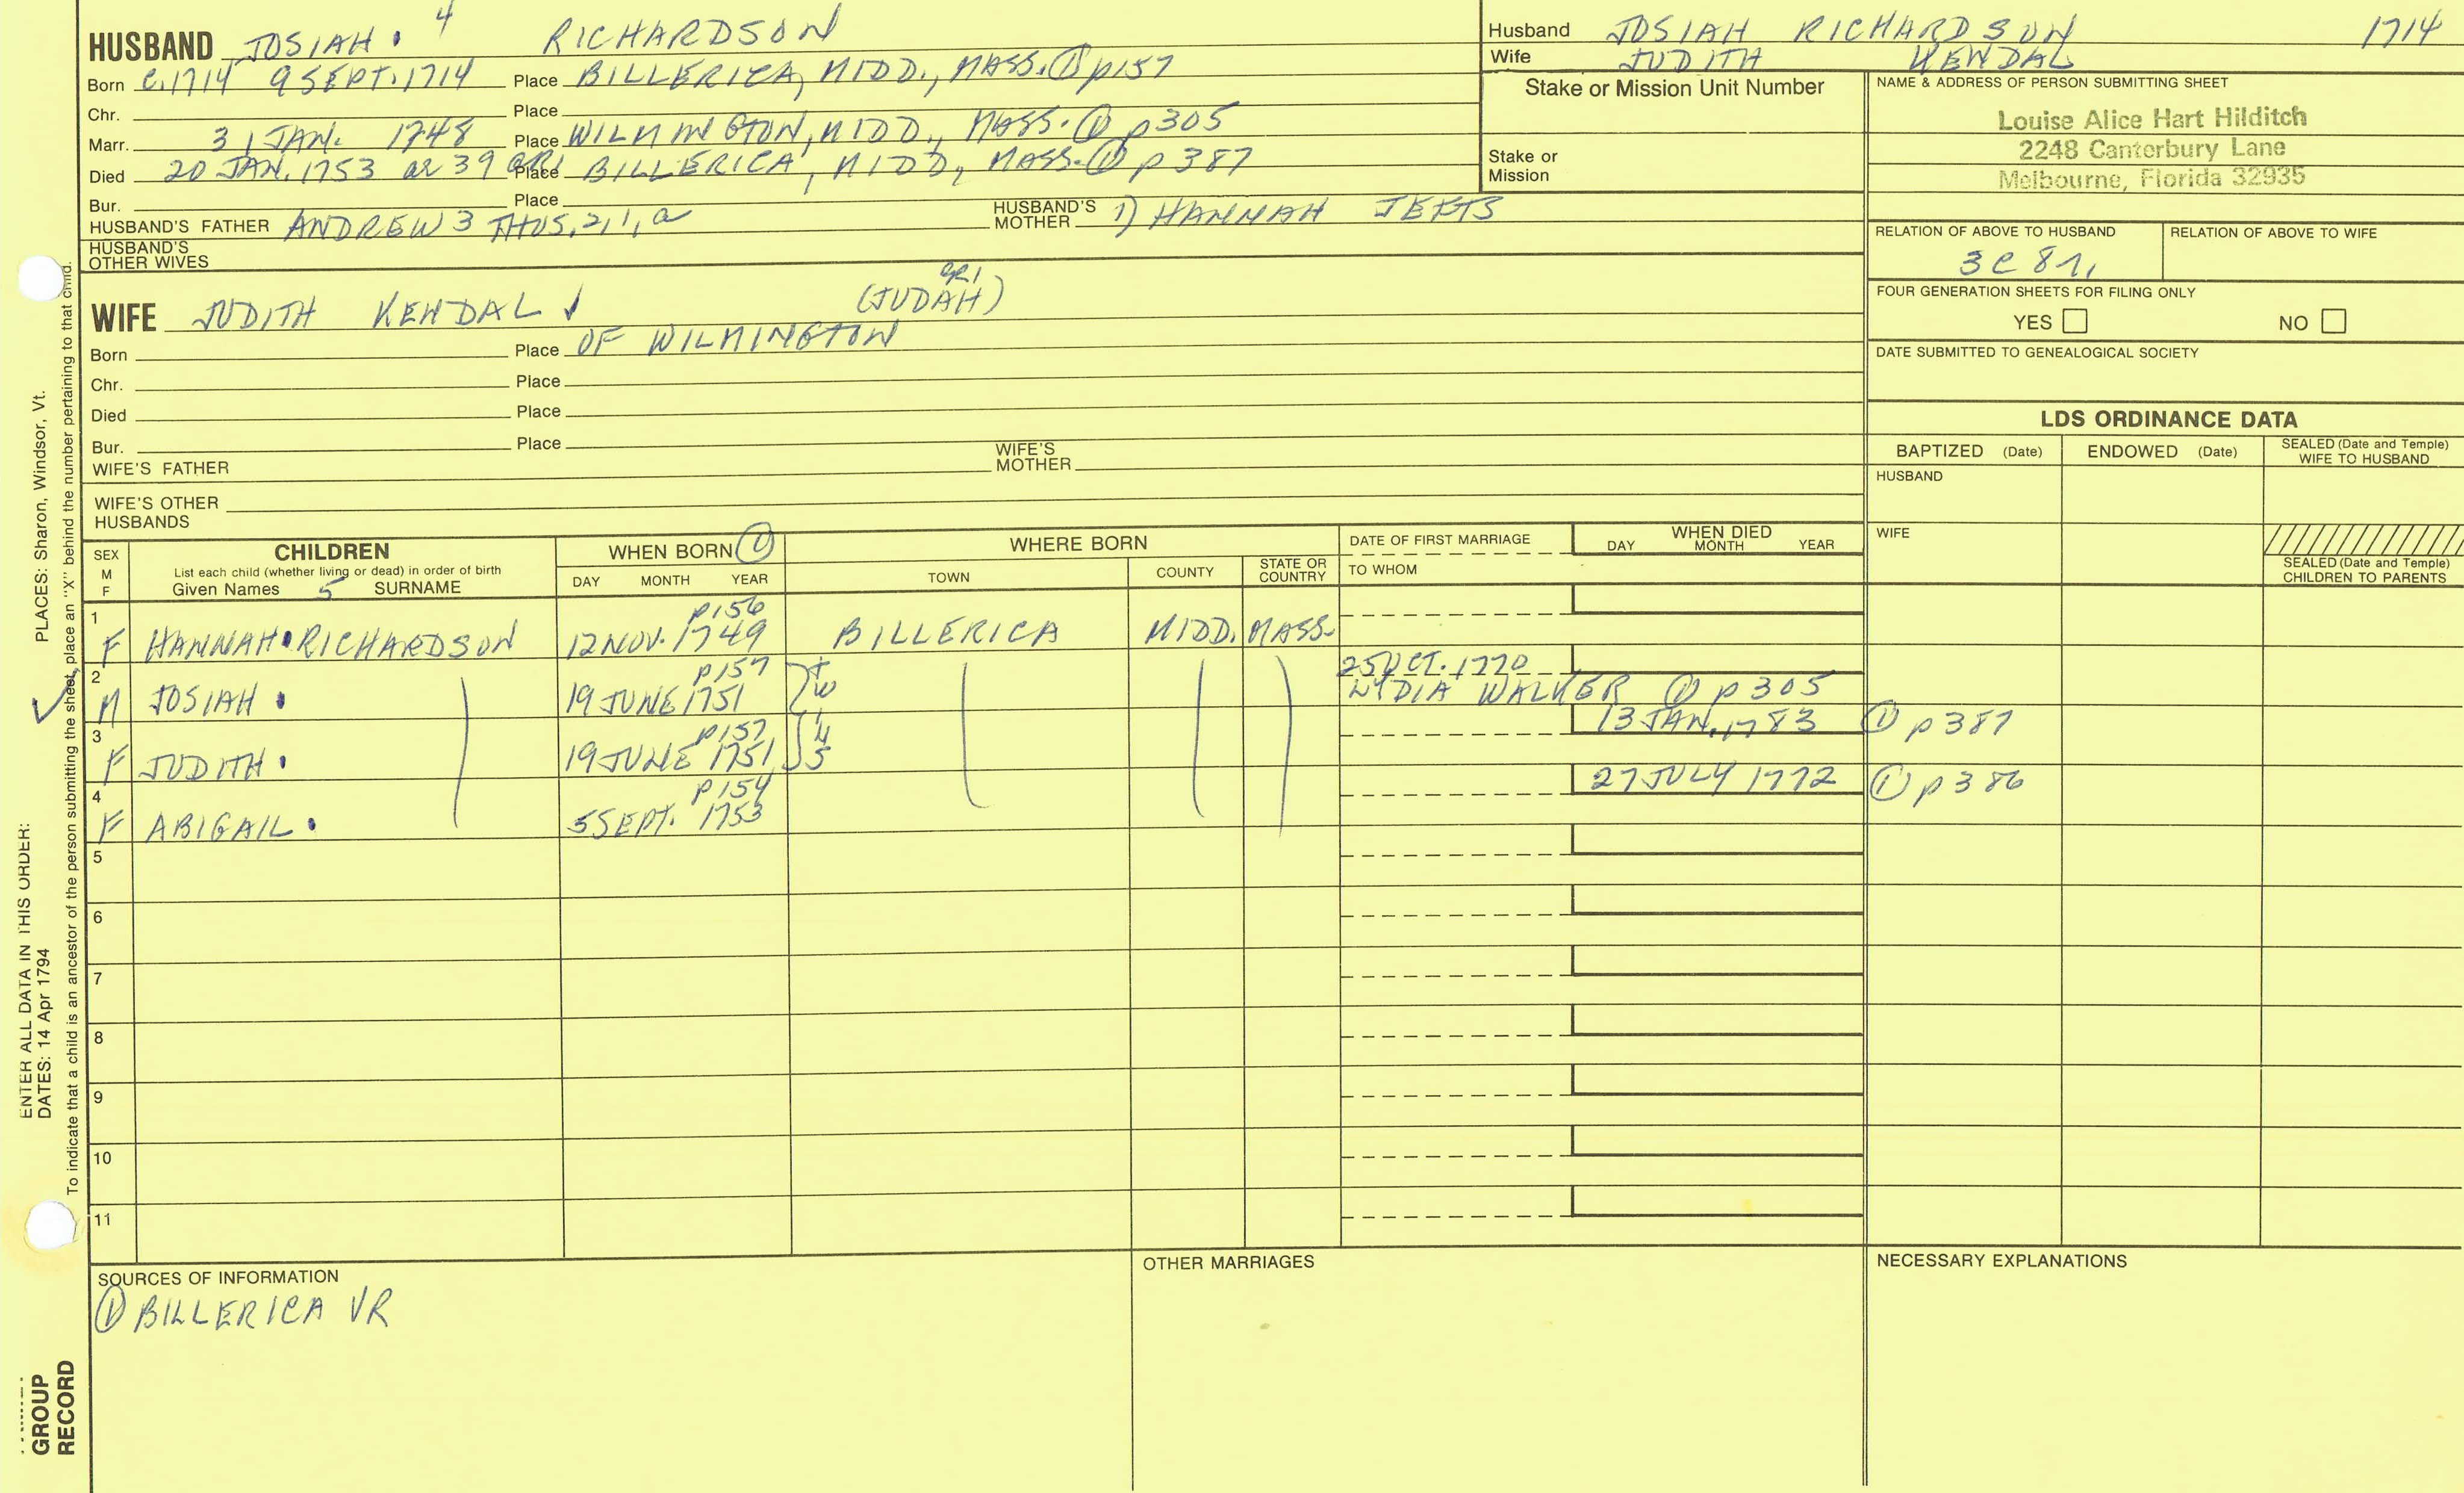 HUSBAND JOSIAH. 4 RICHARDSON
Born C.1714 9 SEPT. 1714 Place BILLERICA, MIDD., MASS. ① p157
Chr. Place
Marr. 31 JAN. 1748 Place WILMINGTON, MIDD., MASS. ① p305
Died 20 JAN. 1753 ae 39 GR1 Place BILLERICA, MIDD, MASS. ① p387
Bur. Place
HUSBAND'S FATHER ANDREW 3 THOS, 2, 1, a HUSBAND'S MOTHER 1) HANNAH JEFTS
HUSBAND'S OTHER WIVES
WIFE JUDITH KENDAL (JUDAH) GR1
Born Place OF WILMINGTON
Chr. Place
Died Place
Bur. Place
WIFE'S FATHER WIFE'S MOTHER
WIFE'S OTHER HUSBANDS
Husband JOSIAH RICHARDSON 1714
Wife JUDITH KENDAL
Stake or Mission Unit Number
Stake or Mission
NAME & ADDRESS OF PERSON SUBMITTING SHEET
Louise Alice Hart Hilditch
2248 Canterbury Lane
Melbourne, Florida 32935
RELATION OF ABOVE TO HUSBAND RELATION OF ABOVE TO WIFE
3C 8r,
FOUR GENERATION SHEETS FOR FILING ONLY
YES NO
DATE SUBMITTED TO GENEALOGICAL SOCIETY
LDS ORDINANCE DATA
BAPTIZED (Date) ENDOWED (Date) SEALED (Date and Temple) WIFE TO HUSBAND
HUSBAND
WIFE
SEALED (Date and Temple) CHILDREN TO PARENTS
SEX M F CHILDREN WHEN BORN ① WHERE BORN DATE OF FIRST MARRIAGE WHEN DIED
List each child (whether living or dead) in order of birth
Given Names 5 SURNAME DAY MONTH YEAR TOWN COUNTY STATE OR COUNTRY TO WHOM DAY MONTH YEAR
1 p156
F HANNAH. RICHARDSON 12 NOV. 1749 BILLERICA MIDD. MASS.
2 p157 25 OCT. 1770
M JOSIAH. 19 JUNE 1751 TW LYDIA WALKER ① p305
3 p157 13 JAN. 1783 ① p387
F JUDITH. 19 JUNE 1751
4 p154 27 JULY 1772 ① p386
F ABIGAIL. 5 SEPT. 1753
5
6
7
8
9
10
11
SOURCES OF INFORMATION
① BILLERICA VR
OTHER MARRIAGES
NECESSARY EXPLANATIONS
ENTER ALL DATA IN THIS ORDER:
DATES: 14 Apr 1794 PLACES: Sharon, Windsor, Vt.
To indicate that a child is an ancestor of the person submitting the sheet, place an "X" behind the number pertaining to that child.
GROUP
RECORD